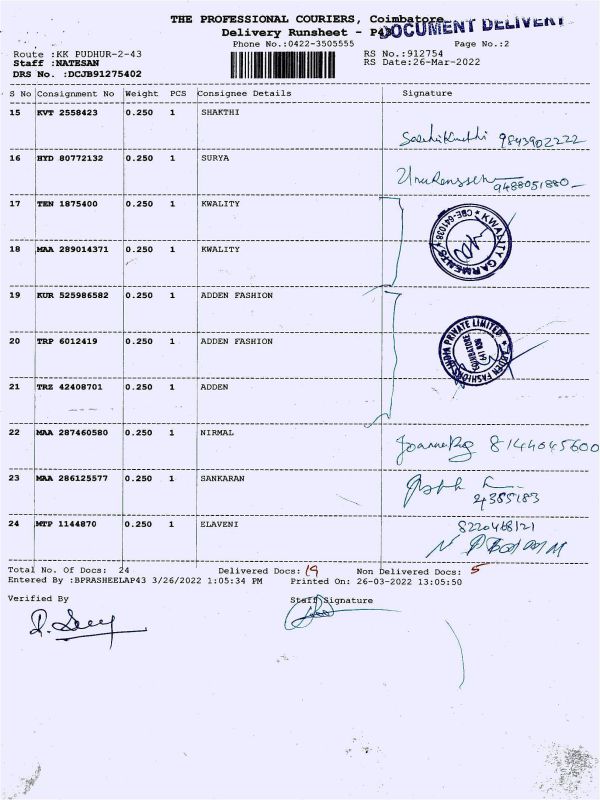 THE PROFESSIONAL COURIERS, Coimbatore
DOCUMENT DELIVERY
Delivery Runsheet - P43
Phone No.:0422-3505555 Page No.:2
Route :KK PUDHUR-2-43 RS No.:912754
Staff :NATESAN RS Date:26-Mar-2022
DRS No. :DCJB91275402
S No Consignment No Weight PCS Consignee Details Signature
15 KVT 2558423 0.250 1 SHAKTHI
9843902222
16 HYD 80772132 0.250 1 SURYA
9488051880
17 TEN 1875400 0.250 1 KWALITY
KWALITY GARMENTS * CBE-641038 *
18 MAA 289014371 0.250 1 KWALITY
19 KUR 525986582 0.250 1 ADDEN FASHION
20 TRP 6012419 0.250 1 ADDEN FASHION
PRIVATE LIMITED
COIMBATORE
21 TRZ 42408701 0.250 1 ADDEN
22 MAA 287460580 0.250 1 NIRMAL
8144045600
23 MAA 286125577 0.250 1 SANKARAN
24 MTP 1144870 0.250 1 ELAVENI
Total No. Of Docs: 24 Delivered Docs: 19 Non Delivered Docs: 5
Entered By :BPRASHEELAP43 3/26/2022 1:05:34 PM Printed On: 26-03-2022 13:05:50
Verified By Staff Signature